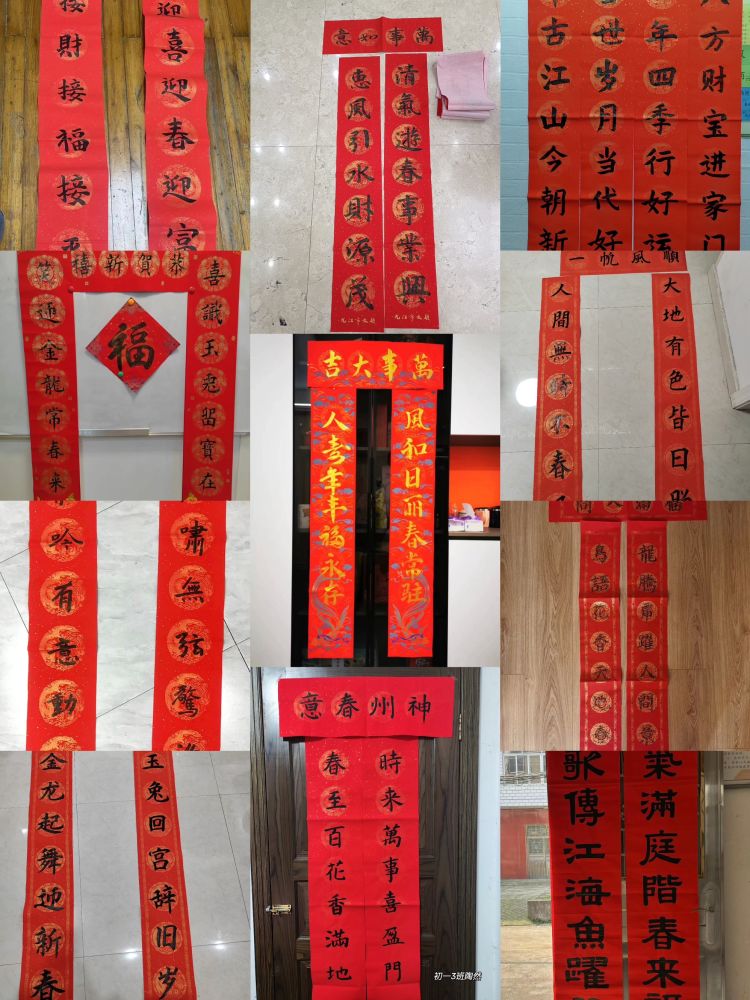 迎喜迎春迎富
接財接福接
萬事如意
清氣遊春事業興
惠風引水財源茂
八方财宝进家门
年四季行好运
世岁月当代好
古江山今朝新
恭賀新禧
喜識玉兔留寶在
笑迎金龍常春来
福
一帆風順
大地有色皆日
人間無時不春
萬事大吉
風和日丽春常驻
人寿年丰福永存
嘯無弦驚
吟有意動
福滿人間
龍騰虎躍人間
鳥語花香天地春
玉兔回宫辞旧岁
金龙起舞迎新春
神州春意
時来萬事喜盈門
春至百花香滿地
初一3班陶然
氣滿庭階春来
歌傳江海魚躍